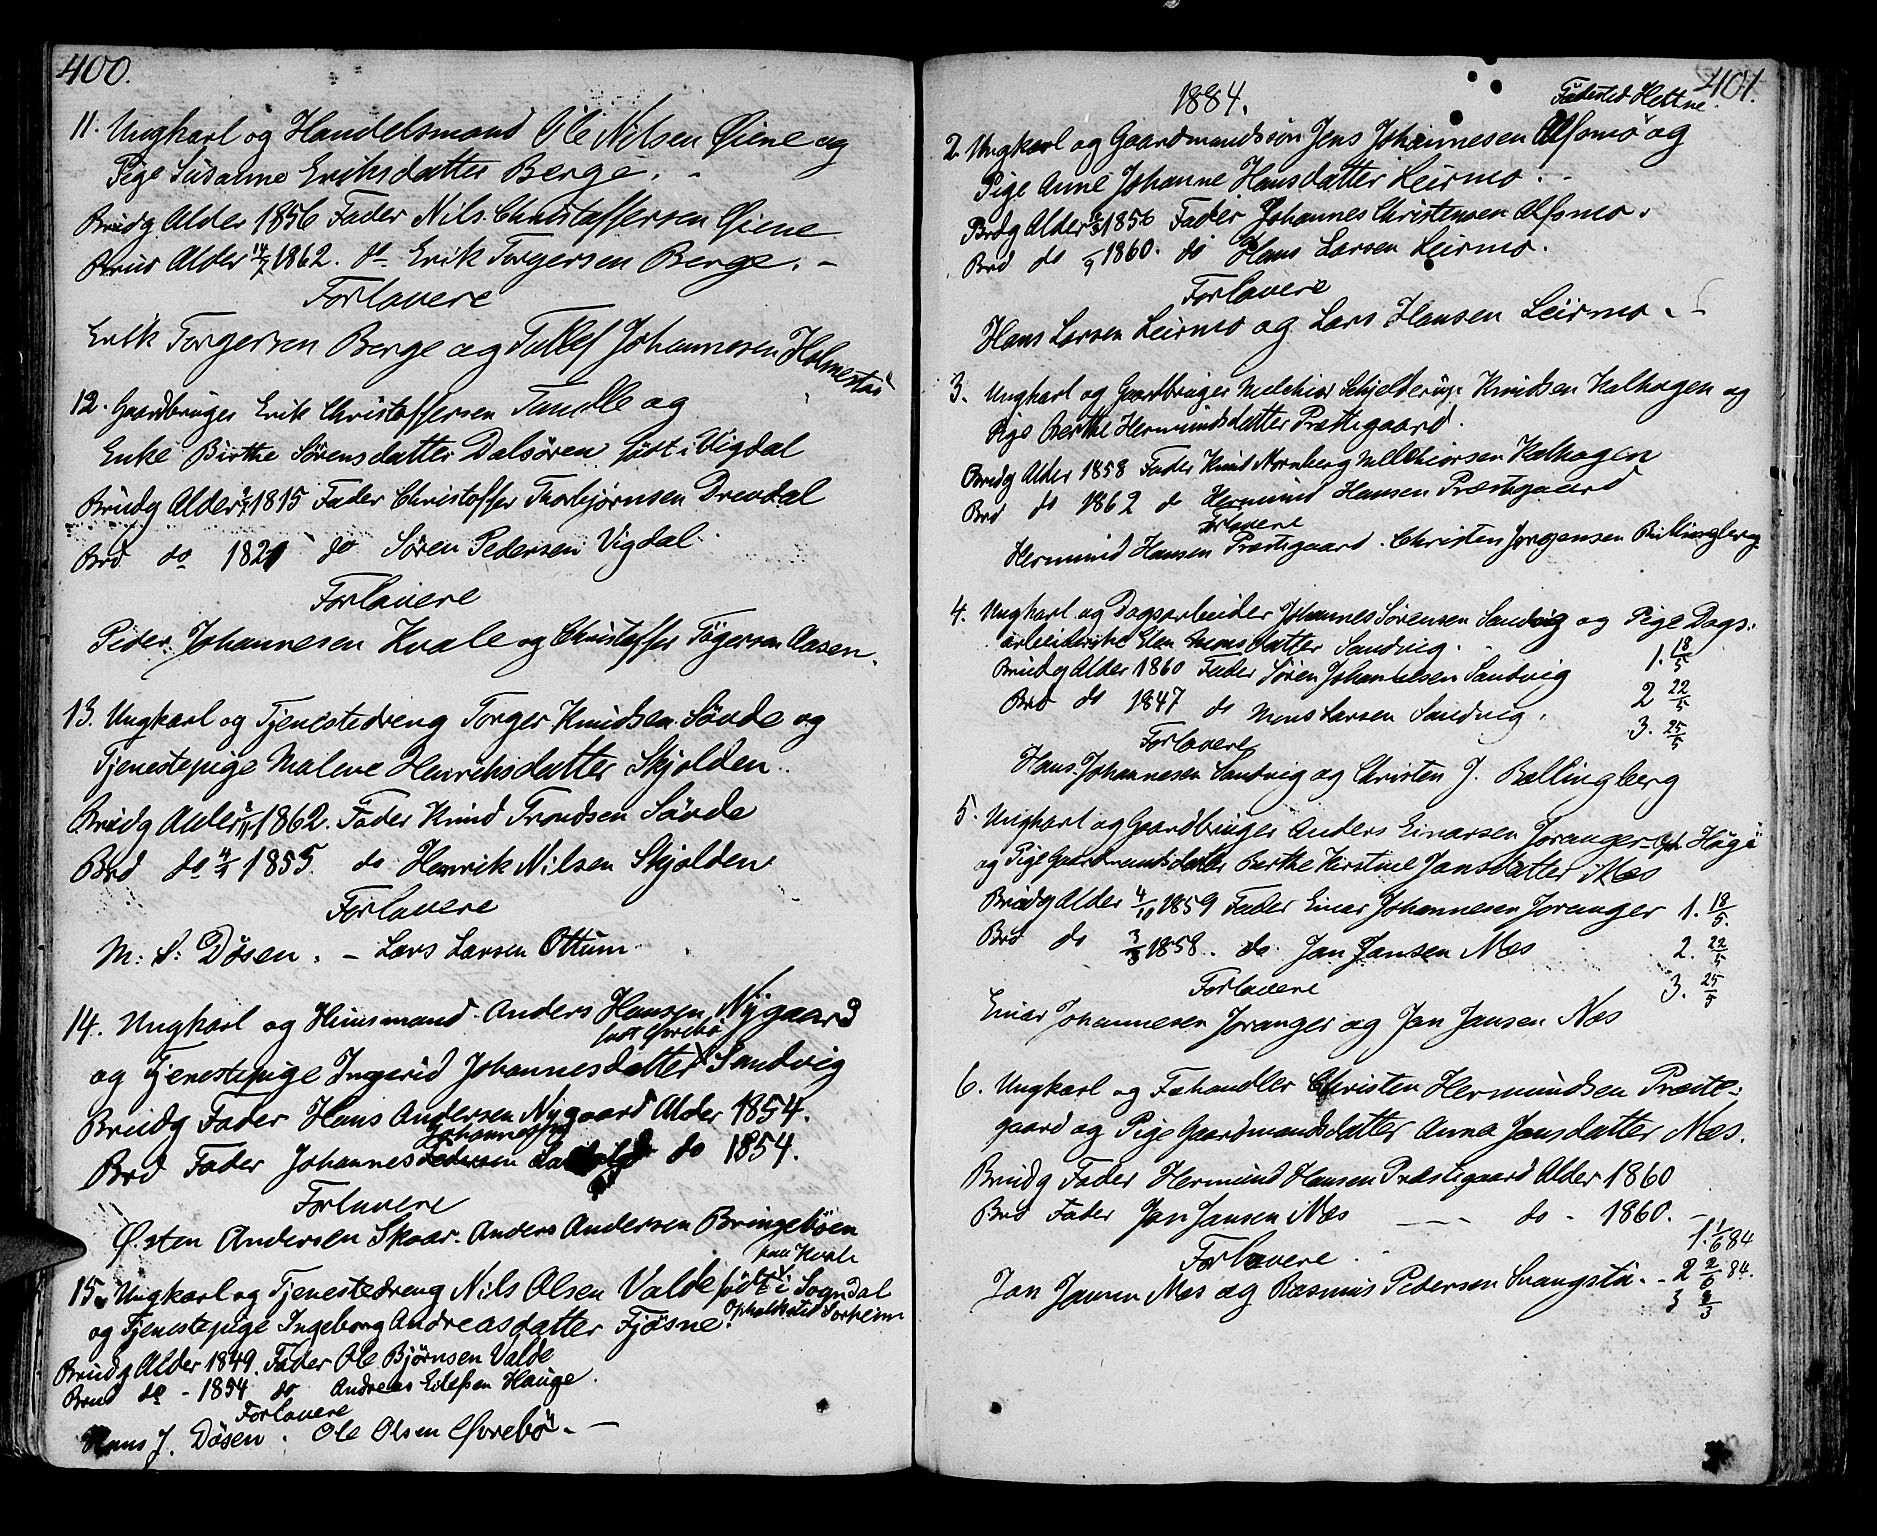 400.
11. Ungkarl og Handelsmand Ole Nilsen Øiene og
Pige Susanne Eriksdatter Berge. -
Brudg Alder 1856 Fader Nils Christoffersen Øiene
Brud Alder 14/7 1862. do Erik Torgersen Berge. -
Forlovere
Erik Torgersen Berge og Tollef Johannesen Holmestad
12. Gaardbruger Erik Christoffersen Tandle og
Enke Birthe Sørensdatter Dalsøren født i Vigdal
Brudg Alder 1815 Fader Christoffer Thorbjørnsen Drevdal
Brd do 1821 do Søren Pedersen Vigdal
Forlovere
Peder Johannesen Kvale og Christoffer Tøgersen Aasen.
13. Ungkarl og Tjenestedreng Torger Knudsen Søvde og
Tjenestepige Malene Henriksdatter Skjolden.
Brudg Alder 1862. Fader Knud Trondsen Søvde
Brd do 1855. do Henrik Nilsen Skjolden
Forlovere
M: S: Døsen. - Lars Larsen Ottum
14. Ungkarl og Huusmand Anders Hansen Nygaard
født Øvrebø
og Tjenestepige Ingerid Johannesdatter Sandvig
Brudg Fader Hans Andersen Nygaard Alder 1854.
Johannessen
Brd Fader Johannes Pedersen do 1854.
Forlovere
Østen Andersen Skaar. Anders Andersen Bringebøen
paa Kvale
15. Ungkarl og Tjenestedreng Nils Olsen Valde født i Sogndal
og Tjenestepige Ingeborg Andreasdatter Fjøsne. Opholdssted Sorheim
Brudg Alder 1849. Fader Ole Bjørnsen Valde
Brud do - 1854 do Andreas Hauge.
Forlovere
Hans J. Døsen. Ole Olsen Øvrebø. -
401.
1884.
Fødested Hettne.
2. Ungkarl og Gaardmandssøn Jens Johannesen Alsmo og
Pige Anne Johanne Hansdatter Leirmo. -
Brdg Alder 1856 Fader Johannes Christensen Alsmo.
Brd do 1860. do Hans Larsen Leirmo.
Forlovere
Hans Larsen Leirmo og Lars Hansen Leirmo. -
3. Ungkarl og Gaardbruger Melchior Schjelderup Knudsen Kalhagen og
Pige Berthe Hermundsdatter Præstegaard.
Brudg Alder 1858 Fader Knud Nornberg Melchiorsen Kalhagen
Brd do 1862 do Hermund Hansen Præstegaard
Forlovere
Hermund Hansen Præstegaard. Christen Jørgensen Bællingberg
4. Ungkarl og Dagsarbeider Johannes Sørensen Sandvig og Pige Dags:
arbeiderske Elen Monsdatter Sandvig. 1. 18/5
Brudg Alder 1860 Fader Søren Johannesen Sandvig 2 22/5
Brd do 1847 do Mons Larsen Sandvig. 3. 25/5
Forlovere
Hans Johannesen Sandvig og Christen J. Bællingberg
5. Ungkarl og Gaardbruger Anders Einarsen Joranger - Oph Høgi
og Pige Gaardmandsdatter Berthe Kirstine Jansdatter Næs
Brudg Alder 4/10 1859 Fader Einar Johannesen Joranger 1. 18/5.
Brd do 3/3 1858. do Jan Jansen Næs 2. 22/5
Forlovere 3. 25/5
Einar Johannesen Joranger og Jan Jansen Næs
6. Ungkarl og Fæhandler Christen Hermundsen Præste-
gaard og Pige Gaardmandsdatter Anna Jansdatter Næs.
Brudg Fader Hermund Hansen Præstegaard Alder 1860
Brd Fader Jan Jansen Næs - - - do - 1860. -
Forlovere. 1. 1/6 84
Jan Jansen Næs og Rasmus Pedersen Svangstu. - 2 2/6 - 84.
3